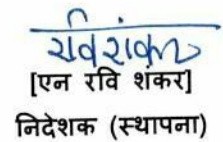 रवि शंकर
[एन रवि शंकर]
निदेशक (स्थापना)